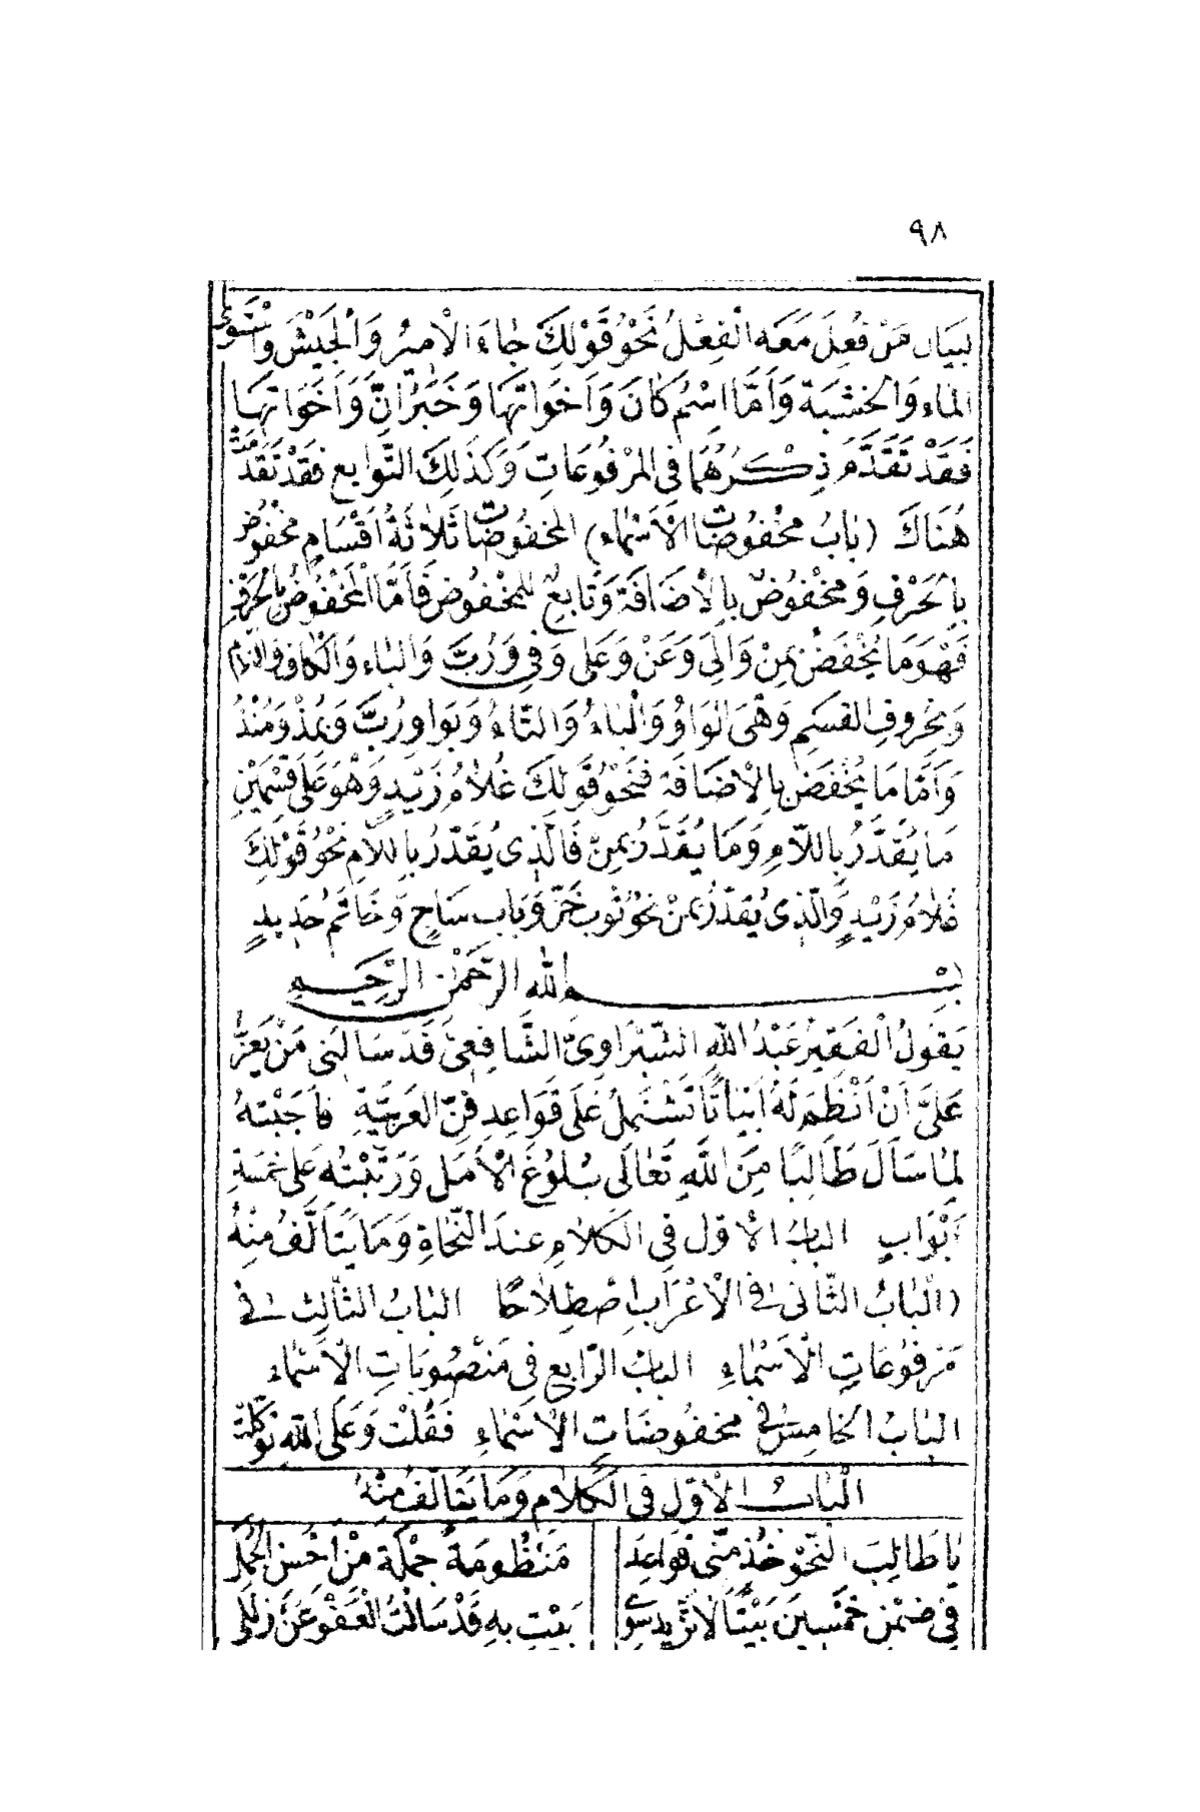 ٩٨
لِبَيَانِ مَنْ فُعِلَ مَعَهُ الْفِعْلُ نَحْوُ قَوْلِكَ جَاءَ الْأَمِيرُ وَالْجَيْشَ وَاسْتَوَى
الْمَاءُ وَالْخَشَبَةَ وَأَمَّا اسْمُ كَانَ وَأَخَوَاتِهَا وَخَبَرُ إِنَّ وَأَخَوَاتِهَا
فَقَدْ تَقَدَّمَ ذِكْرُهُمَا فِي الْمَرْفُوعَاتِ وَكَذَلِكَ التَّوَابِعُ فَقَدْ تَقَدَّمَتْ
هُنَاكَ (بَابُ مَخْفُوضَاتِ الْأَسْمَاءِ) الْمَخْفُوضَاتُ ثَلَاثَةُ أَقْسَامٍ مَخْفُوضٌ
بِالْحَرْفِ وَمَخْفُوضٌ بِالْإِضَافَةِ وَتَابِعٌ لِلْمَخْفُوضِ فَأَمَّا الْمَخْفُوضُ بِالْحَرْفِ
فَهُوَ مَا يُخْفَضُ بِمِنْ وَإِلَى وَعَنْ وَعَلَى وَفِي وَرُبَّ وَالْبَاءِ وَالْكَافِ وَاللَّامِ
وَبِحُرُوفِ الْقَسَمِ وَهْيَ الْوَاوُ وَالْبَاءُ وَالتَّاءُ وَبِوَاوِ رُبَّ وَبِمُذْ وَمُنْذُ
وَأَمَّا مَا يُخْفَضُ بِالْإِضَافَةِ فَنَحْوُ قَوْلِكَ غُلَامُ زَيْدٍ وَهْوَ عَلَى قِسْمَيْنِ
مَا يُقَدَّرُ بِاللَّامِ وَمَا يُقَدَّرُ بِمِنْ فَالَّذِي يُقَدَّرُ بِاللَّامِ نَحْوُ قَوْلِكَ
غُلَامُ زَيْدٍ وَالَّذِي يُقَدَّرُ بِمِنْ نَحْوُ ثَوْبُ خَزٍّ وَبَابُ سَاجٍ وَخَاتَمُ حَدِيدٍ
بِسْمِ اللهِ الرَّحْمٰنِ الرَّحِيمِ
يَقُولُ الْفَقِيرُ عَبْدُ اللهِ الشَّبْرَاوِيُّ الشَّافِعِيُّ قَدْ سَأَلَنِي مَنْ يَعِزُّ
عَلَيَّ أَنْ أَنْظِمَ لَهُ أَبْيَاتًا تَشْتَمِلُ عَلَى قَوَاعِدِ فَنِّ الْعَرَبِيَّةِ فَأَجَبْتُهُ
لِمَا سَأَلَ طَالِبًا مِنَ اللهِ تَعَالَى بُلُوغَ الْأَمَلِ وَرَتَّبْتُهُ عَلَى خَمْسَةِ
أَبْوَابٍ الْبَابُ الْأَوَّلُ فِي الْكَلَامِ عِنْدَ النُّحَاةِ وَمَا يَتَأَلَّفُ مِنْهُ
(الْبَابُ الثَّانِي فِي الْإِعْرَابِ اصْطِلَاحًا الْبَابُ الثَّالِثُ فِي
مَرْفُوعَاتِ الْأَسْمَاءِ الْبَابُ الرَّابِعُ فِي مَنْصُوبَاتِ الْأَسْمَاءِ
الْبَابُ الْخَامِسُ فِي مَخْفُوضَاتِ الْأَسْمَاءِ فَقُلْتُ وَعَلَى اللهِ تَوَكَّلْتُ
الْبَابُ الْأَوَّلُ فِي الْكَلَامِ وَمَا يَتَأَلَّفُ مِنْهُ
يَا طَالِبَ النَّحْوِ خُذْ مِنِّي قَوَاعِدَ مَنْظُومَةً جُمْلَةً مِنْ أَحْسَنِ الْجُمَلِ
فِي ضِمْنِ خَمْسِينَ بَيْتًا لَا تَزِيدُ سِوَى بَيْتٍ بِهِ قَدْ سَأَلْتُ الْعَفْوَ عَنْ زَلَلِي